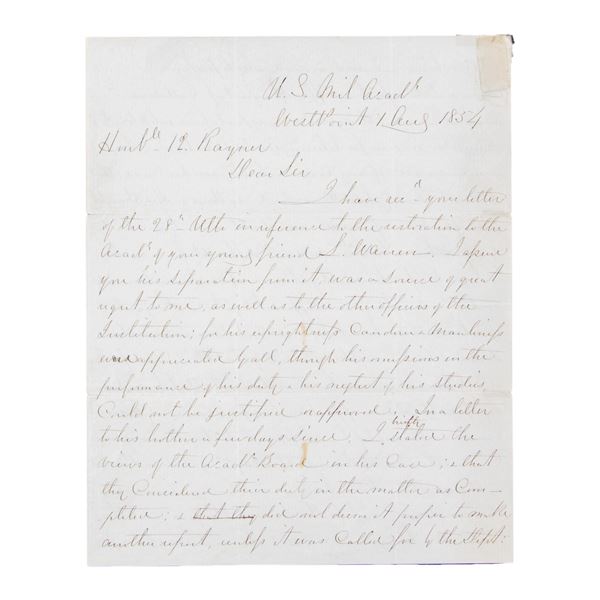 U. S. Mil Acady
West Point 1 Aug 1854
Honble K. Rayner
Dear Sir
I have recd your letter
of the 28th Ulto in reference to the restoration to the
Acady of your young friend L. Warren. I assure
you his separation from it, was a source of great
regret to me, as well as to the other officers of the
Institution; for his uprightness Candour & Manliness
were appreciated by all, though his omissions in the
performance of his duty & his neglect of his Studies
Could not be justified or approved. In a letter
to his brother a few days since, I briefly stated the
views of the Acadc Board in his Case; & that
they Considered their duty in the matter as Com-
pleted; & that they did not deem it proper to make
another report, unless it was Called for by the Dept: